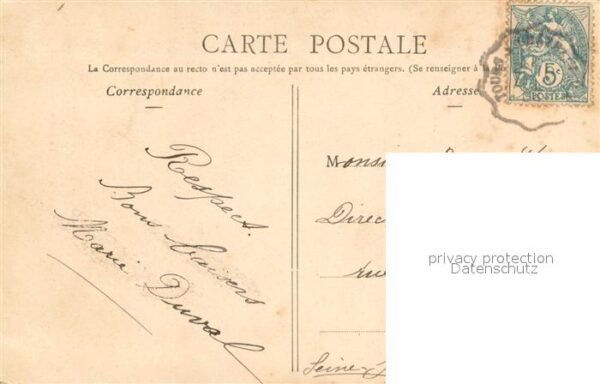 CARTE POSTALE
La Correspondance au recto n'est pas acceptée par tous les pays étrangers. (Se renseigner à la
Correspondance
Adresse
5c
POSTES
TOURS
Respect.
Bons baisers
Marie Duval
Monsi
Direc
Seine
privacy protection
Datenschutz